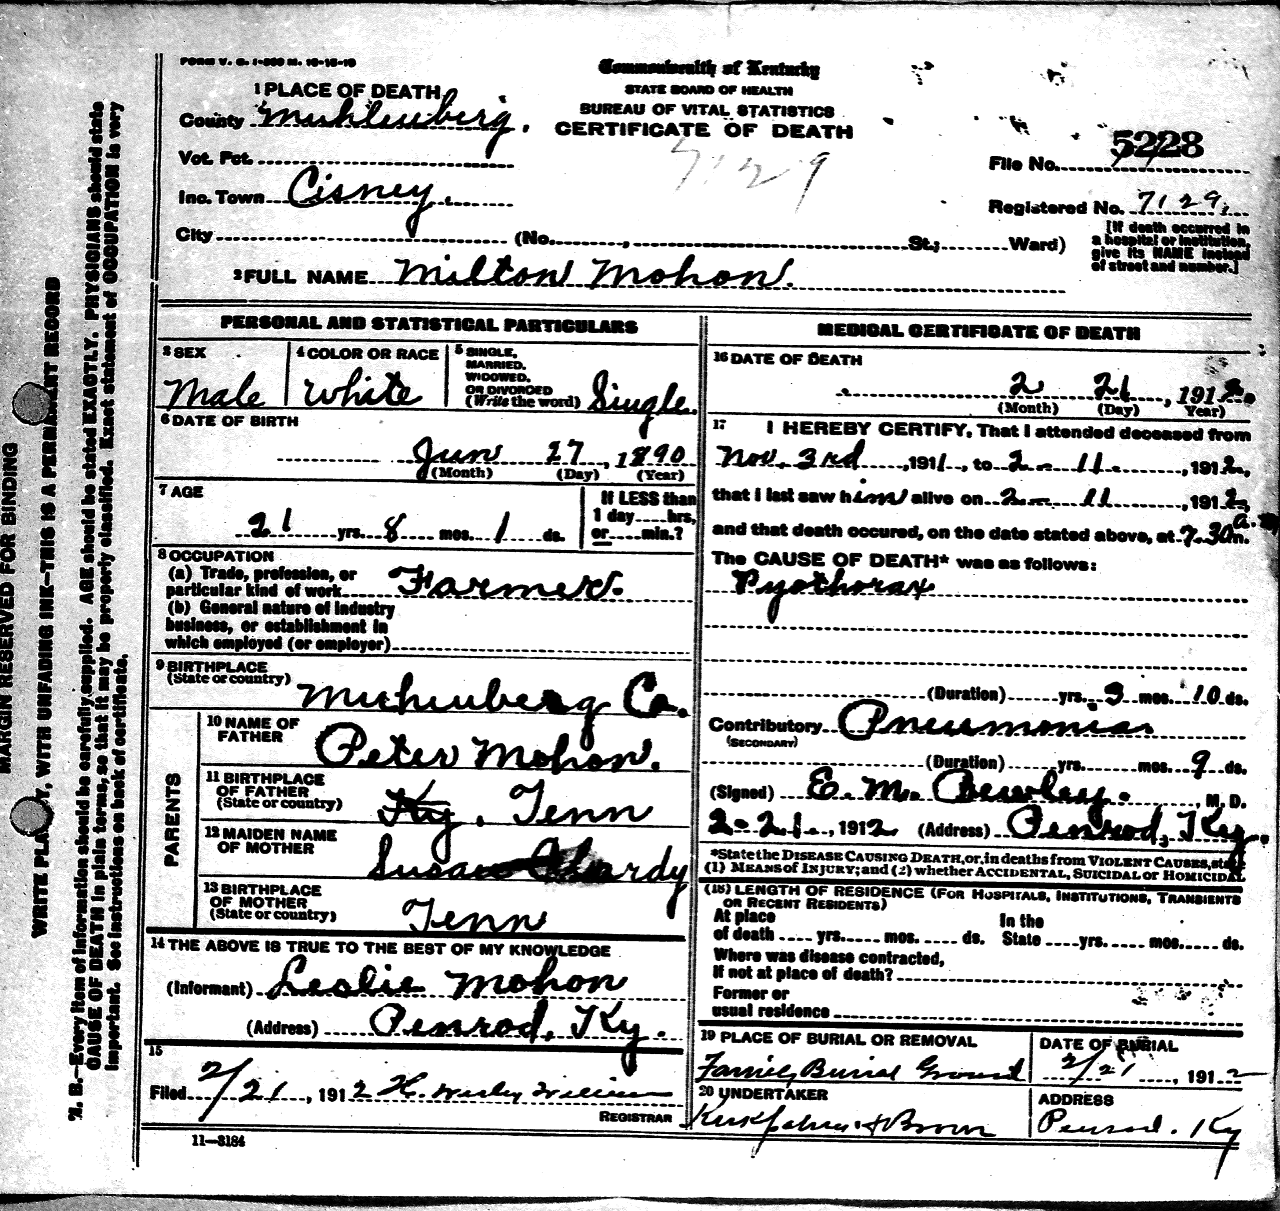 FORM V. S. 1-300 M. 10-16-10
Commonwealth of Kentucky
STATE BOARD OF HEALTH
BUREAU OF VITAL STATISTICS
CERTIFICATE OF DEATH
1 PLACE OF DEATH
County Muhlenberg.
Vot. Pct.
Inc. Town Cisney.
City (No. , St.; Ward)
7129
File No. 5228
Registered No. 7129.
[If death occurred in
a hospital or institution,
give its NAME instead
of street and number.]
2 FULL NAME Milton Mohon.
PERSONAL AND STATISTICAL PARTICULARS
3 SEX
Male
4 COLOR OR RACE
White
5 SINGLE,
MARRIED,
WIDOWED,
OR DIVORCED
(Write the word) Single.
6 DATE OF BIRTH
Jun 27, 1890
(Month) (Day) (Year)
7 AGE
21 yrs. 8 mos. 1 ds.
If LESS than
1 day hrs,
or min.?
8 OCCUPATION
(a) Trade, profession, or
particular kind of work Farmer.
(b) General nature of industry
business, or establishment in
which employed (or employer)
9 BIRTHPLACE
(State or country)
Muhlenberg Co.
PARENTS
10 NAME OF
FATHER
Peter Mohon.
11 BIRTHPLACE
OF FATHER
(State or country)
Ky. Tenn
12 MAIDEN NAME
OF MOTHER
Susan Hardy
13 BIRTHPLACE
OF MOTHER
(State or country)
Tenn
14 THE ABOVE IS TRUE TO THE BEST OF MY KNOWLEDGE
(Informant) Leslie Mohon
(Address) Penrod, Ky.
15
Filed 2/21, 1912
REGISTRAR
11-3184
MEDICAL CERTIFICATE OF DEATH
16 DATE OF DEATH
2 21, 1912.
(Month) (Day) Year)
17 I HEREBY CERTIFY, That I attended deceased from
Nov. 3rd, 1911, to 2-11, 1912,
that I last saw him alive on 2-11, 1912,
and that death occured, on the date stated above, at 7.30 a.m.
The CAUSE OF DEATH* was as follows:
Pyothorax
(Duration) yrs. 3 mos. 10 ds.
Contributory Pneumonia
(SECONDARY)
(Duration) yrs. mos. 9 ds.
(Signed) E. M. Bewley., M. D.
2-21., 1912 (Address) Penrod, Ky.
*State the DISEASE CAUSING DEATH, or, in deaths from VIOLENT CAUSES, state
(1) MEANS OF INJURY; and (2) whether ACCIDENTAL, SUICIDAL or HOMICIDAL
(18) LENGTH OF RESIDENCE (FOR HOSPITALS, INSTITUTIONS, TRANSIENTS
OR RECENT RESIDENTS)
At place In the
of death yrs. mos. ds. State yrs. mos. ds.
Where was disease contracted,
If not at place of death?
Former or
usual residence
19 PLACE OF BURIAL OR REMOVAL
Family Burial Ground
DATE OF BURIAL
2/21, 1912
20 UNDERTAKER
& Brown
ADDRESS
Penrod. Ky
MARGIN RESERVED FOR BINDING
WRITE PLAINLY, WITH UNFADING INK—THIS IS A PERMANENT RECORD
N. B.—Every item of information should be carefully supplied. AGE should be stated EXACTLY. PHYSICIANS should state
CAUSE OF DEATH in plain terms, so that it may be properly classified. Exact statement of OCCUPATION is very
important. See instructions on back of certificate.